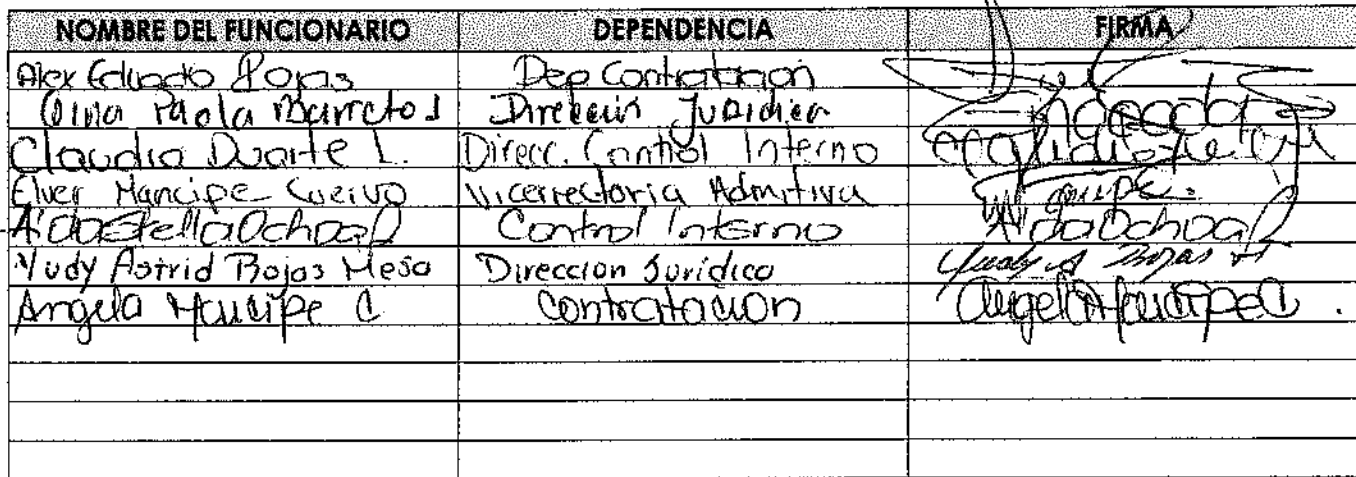 NOMBRE DEL FUNCIONARIO DEPENDENCIA FIRMA
Alex Eduardo Rojas Dep Contratacion
Paola Barreto Dirección Juridica
Claudia Duarte L. Direcc. Control Interno
Elver Mancipe Cuervo Vicerrectoria Admtiva
Aida Stella Ochoa Control Interno Aida Ochoa
Yudy Astrid Rojas Mesa Direccion Juridica Yudy A Rojas M
Angela Mancipe C Contratacion Angela Mancipe C.